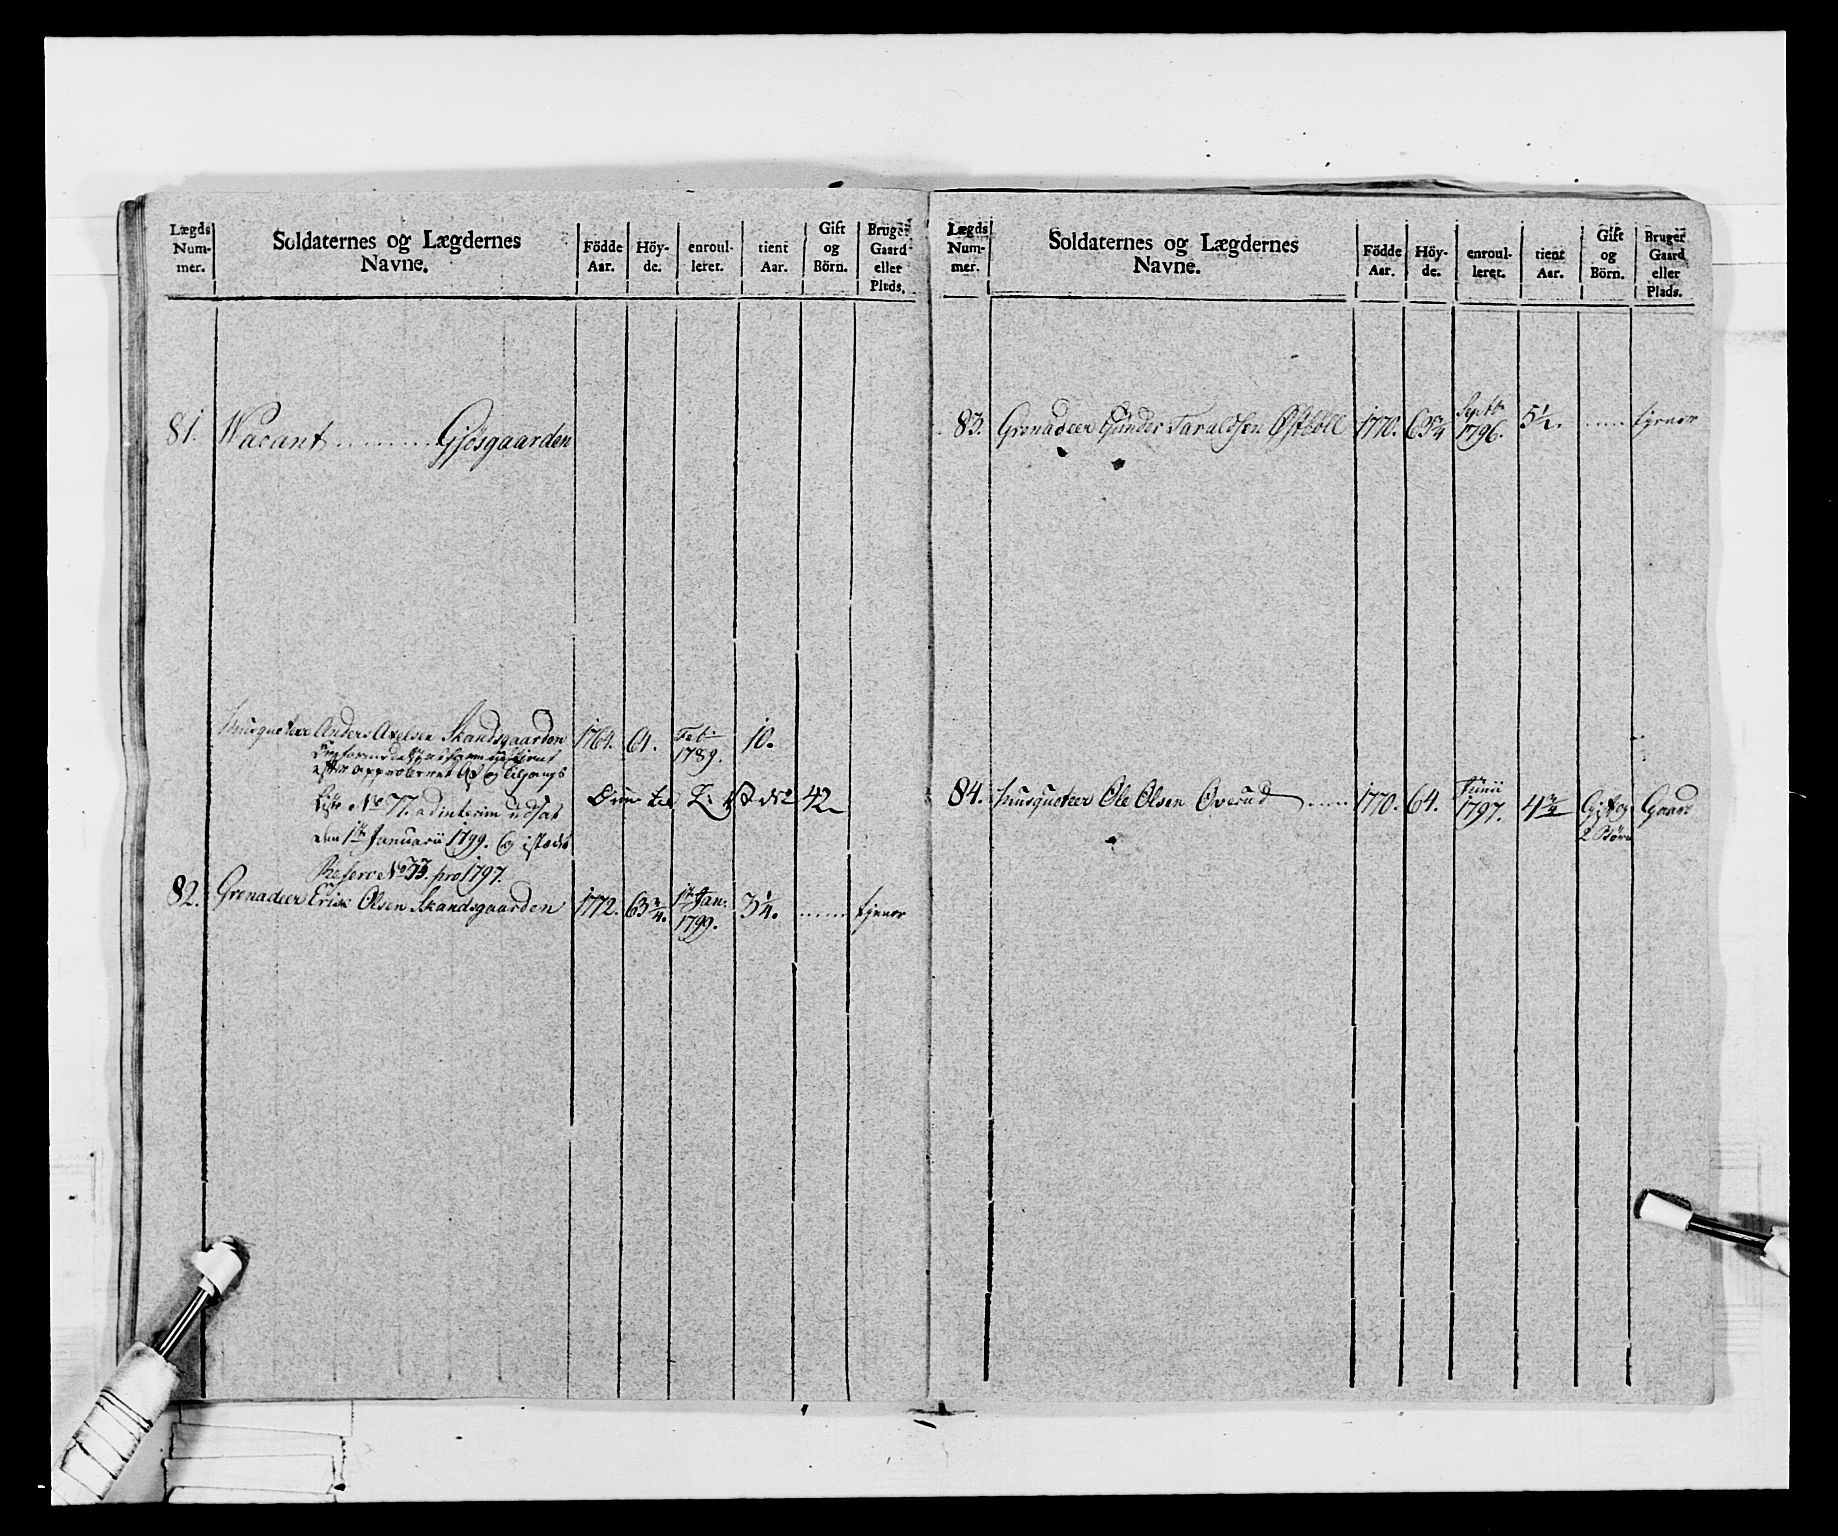 Lægds Num- mer.
Soldaternes og Lægdernes Navne.
Födde Aar.
Höy- de.
enroul- leret.
tient Aar.
Gift og Börn.
Bruger Gaard eller Plads.
81. Vacant ........... Gjösgaarden
Musqueteer Anders Axelsen Skandsgaarden 1764. 61. Feb: 1789. 10.
efter approberet Af og Tilgangs
Liste No 77. ad interim udsat 42
den 1te Januarii 1799. og istæden
Reserve No 33. pro 1797.
82. Grenadeer Erik Olsen Skandsgaarden 1772. 63 3/4. 1te Jan: 1799. 3 1/4. ...... tjener
Lægds Num- mer.
Soldaternes og Lægdernes Navne.
Födde Aar.
Höy- de.
enroul- leret.
tient Aar.
Gift og Börn.
Bruger Gaard eller Plads.
83. Grenadeer Gunder Taraldsen Østböll 1770. 63 3/4 Septb 1796. 5 1/2. ..... tjener
84. Musqueteer Ole Olsen Øverud ..... 1770. 64. Junii 1797. 4 3/4 Gift og 2 Börn Gaard